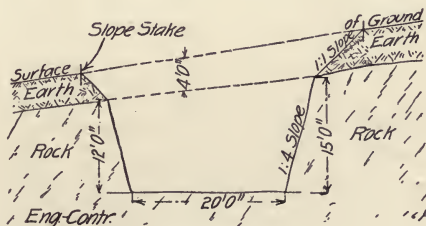 Slope Stake
of Ground
Surface
Earth
1:1 Slope
Earth
4'0"
Rock
12'0"
1:4 Slope
15'0"
Rock
20'0"
Eng-Contr.